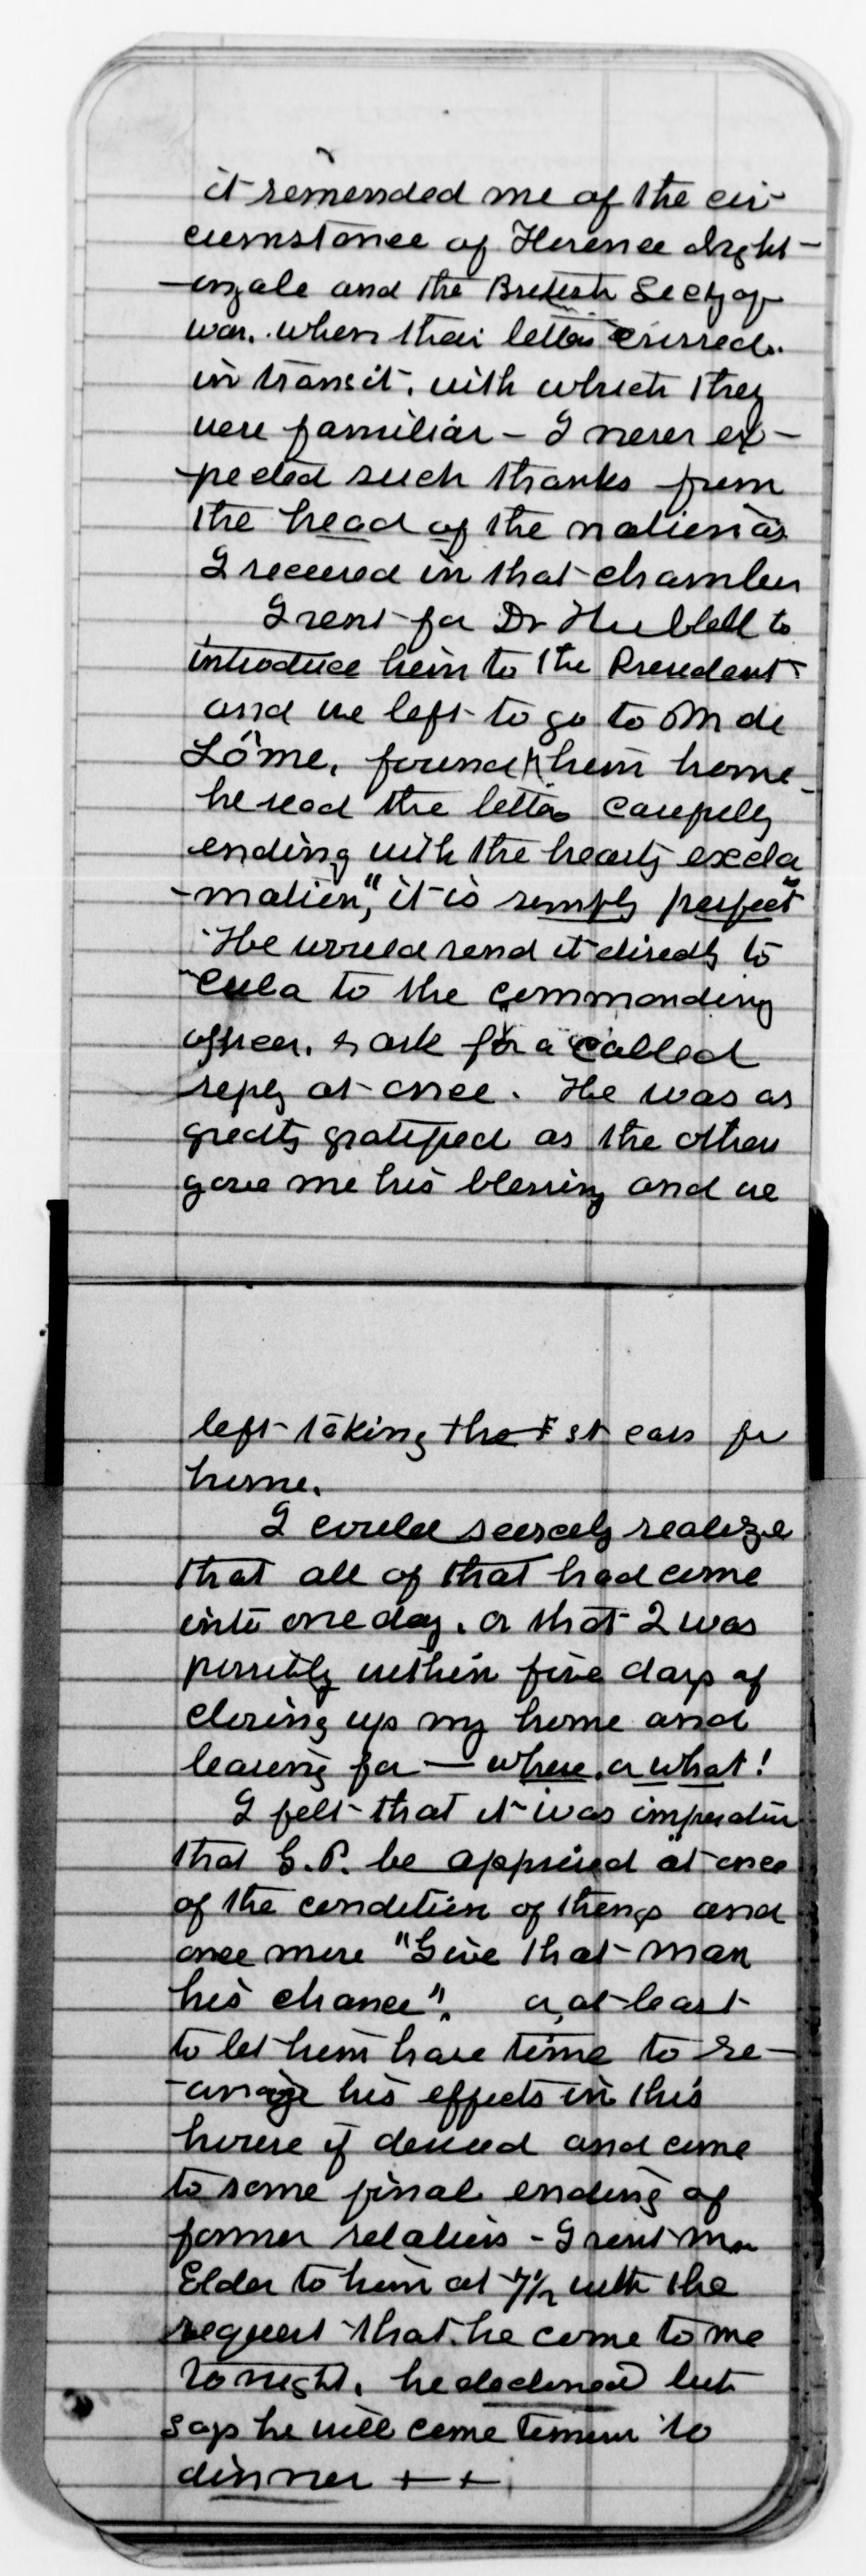 it remended me of the cir-
cumstance of Florence Night-
-ingale and the British Secty of
war. when their letters crossed.
in transit. with which they
were familiar - I never ex-
-pected such thanks from
the head of the nation as
I received in that chamber
I sent for Dr Hubbell to
introduce him to the President
and we left to go to M de
Lôme, found him home -
he read the letter carefully
ending with the hearty excla
-mation", it is simply perfect"
He would send it directly to
Cuba to the commanding
officer. & ask for a cabled
reply at once. He was as
greatly gratified as the others
gave me his blessing and we
left taking the 1st cars for
home.
I could scarcely realize
that all of that had come
into one day. or that I was
possibly within five days of
closing up my home and
leaving for — where, or what!
I felt that it was imperative
that G. P. be apprised at once
of the condition of things and
once more "Give that man
his chance". or, at least
to let him have time to re-
-arrange his effects in this
house if desired and come
to some final ending of
former relations - I sent Mr
Elder to him at 7½ with the
request that he come to me
to night. he declined but
says he will come tomorrow to
dinner + +